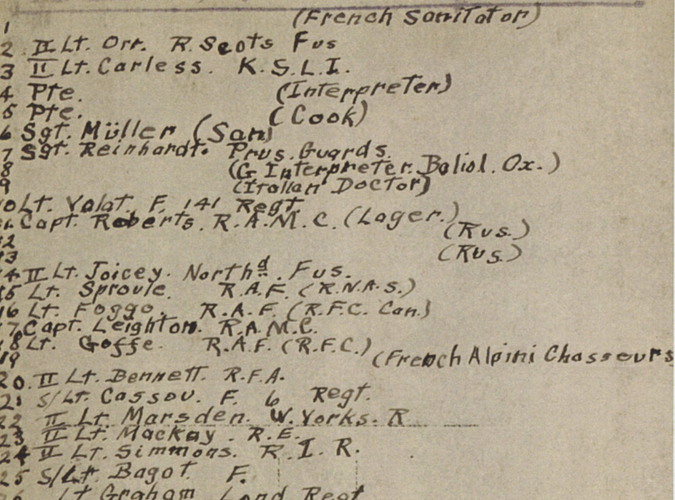 1 (French Sanitator)
2 II Lt. Orr. R. Scots Fus
3 II Lt. Carless. K.S.L.I.
4 Pte. (Interpreter)
5 Pte. (Cook)
6 Sgt. Müller (San)
7 Sgt. Reinhardt. Prus. Guards.
8 (G Interpreter. Baliol. Ox.)
9 (Italian Doctor)
10 Lt. Valat. F. 141 Regt
11. Capt. Roberts. R.A.M.C. (Lager.)
12 (Rus.)
13 (Rus.)
14 II Lt. Joicey. Northd. Fus.
15 Lt. Sproule. R.A.F. (R.N.A.S.)
16 Lt. Foggo. R.A.F. (R.F.C. Can.)
17. Capt. Leighton. R.A.M.C.
18 Lt. Goffe. R.A.F. (R.F.C.)
19 (French Alpini Chasseurs
20. II Lt. Bennett. R.F.A.
21 S/Lt. Cassou. F. 6 Regt.
22 II Lt. Marsden. W. Yorks. R
23 II Lt. Mackay. R.E.
24 II Lt. Simmons. R.I.R.
25 S/Lt. Bagot F.
Lt Graham Lond Regt